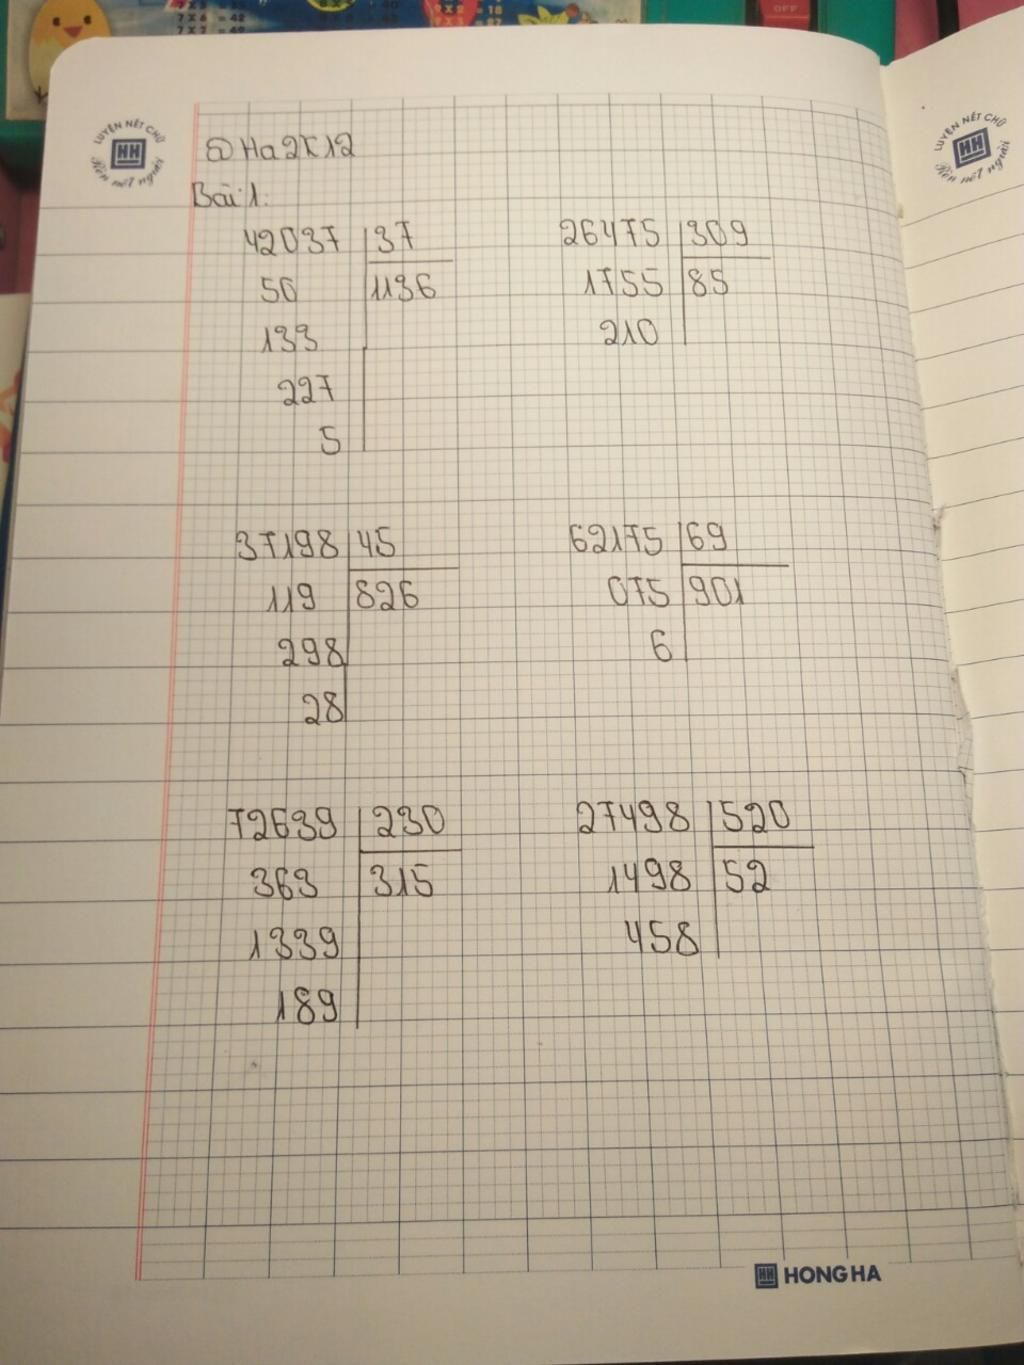 7 x 6 = 42
9 x 2 = 18
OFF
LUYỆN NÉT CHỮ
HH
Rèn nết người
LUYỆN NÉT CHỮ
HH
Rèn nết người
@Ha2K12
Bài 1:
42037 37
50 1136
133
227
5
26475 309
1755 85
210
37198 45
119 826
298
28
62175 69
075 901
6
72639 230
363 315
1339
189
27498 520
1498 52
458
HH HONG HA